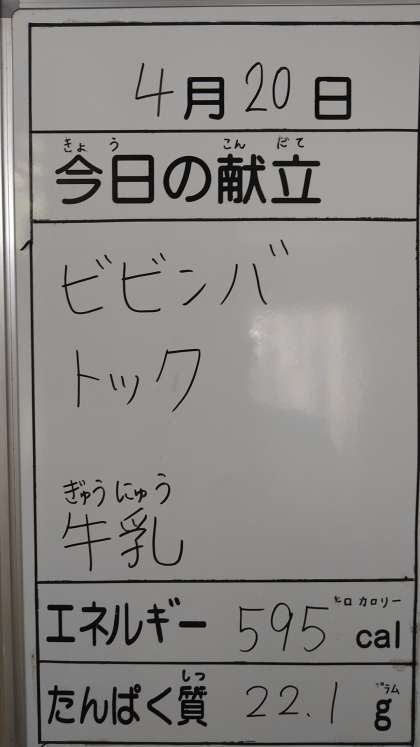 4月20日
きょう こんだて
今日の献立
ビビンバ
トック
ぎゅうにゅう
牛乳
キロカロリー
エネルギー 595 cal
しつ グラム
たんぱく質 22.1 g